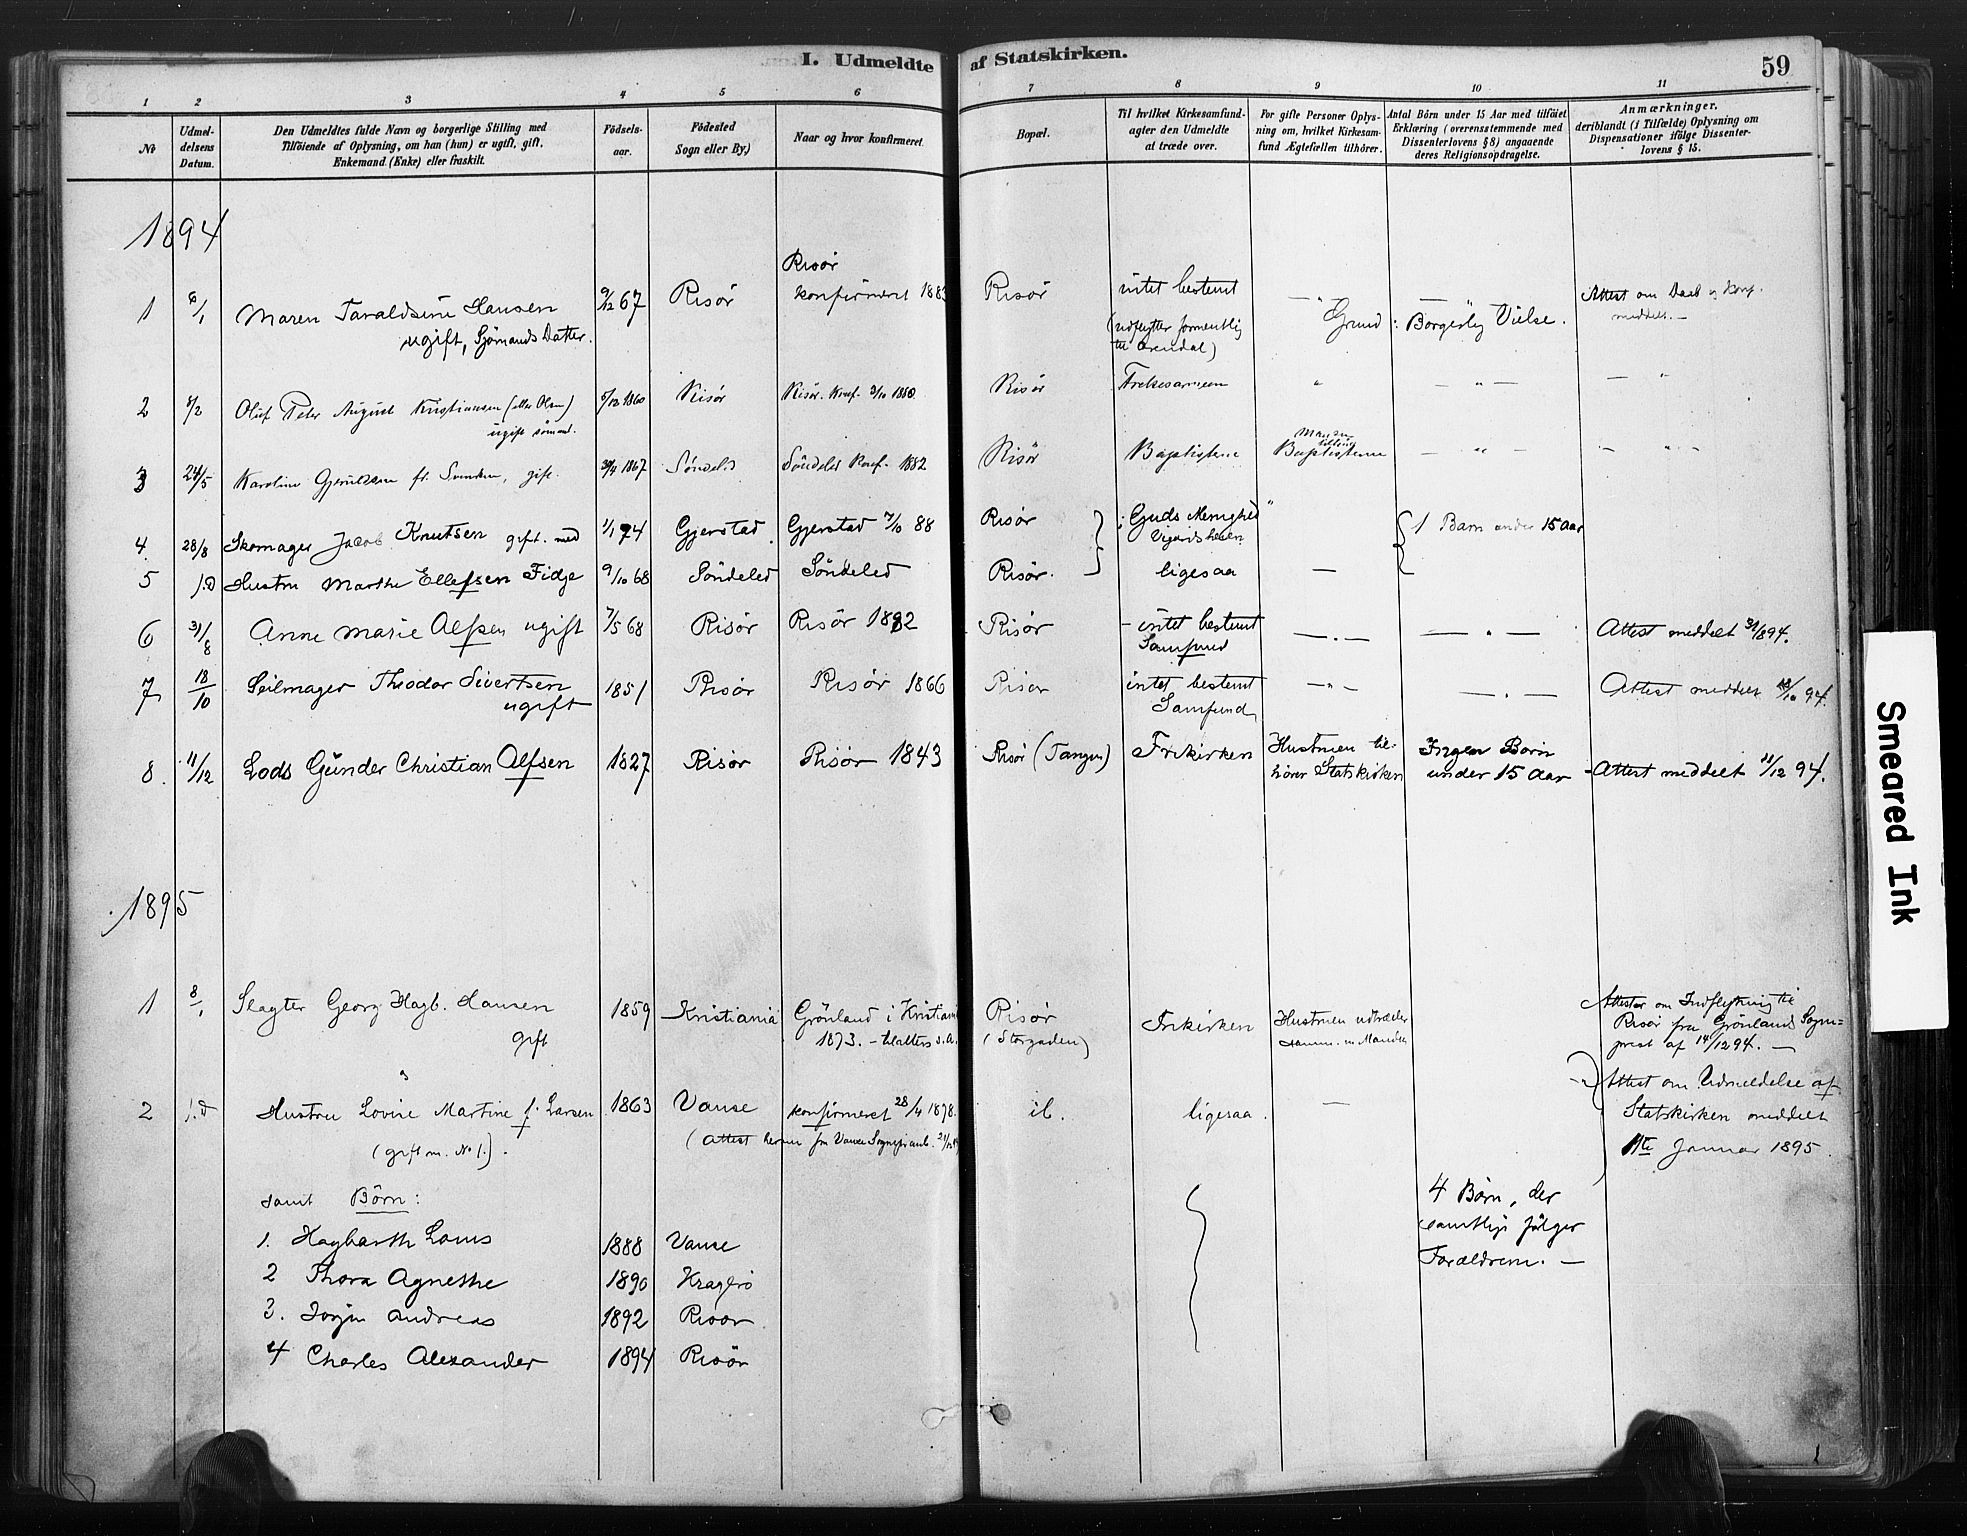 I. Udmeldte af Statskirken.
59
1 2 3 4 5 6 7 8 9 10 11
No
Udmel-
delsens
Datum.
Den Udmeldtes fulde Navn og borgerlige Stilling med
Tilføiende af Oplysning, om han (hun) er ugift, gift,
Enkemand (Enke) eller fraskilt.
Fødsels-
aar.
Fødested
Sogn eller By.)
Naar og hvor konfirmeret.
Bopæl.
Til hvilket Kirkesamfund-
agter den Udmeldte
at træde over.
For gifte Personer Oplys-
ning om, hvilket Kirkesam-
fund Ægtefællen tilhører.
Antal Börn under 15 Aar med tilføiet
Erklæring (overensstemmende med
Dissenterlovens § 8) angaaende
deres Religionsopdragelse.
Anmærkninger,
deriblandt (i Tilfælde) Oplysning om
Dispensationer ifölge Dissenter-
lovens § 15.
1894
1 6/1 Maren Taraldsine Hansen 9/12 67 Risör Risör konfirmeret 1883 Risör intet bestemt — " — — " — Attest om Daab og Konf.
ugift, Sjömands Datter. (udflytter formentlig til Arendal) Grund: Borgerlig Vielse. meddelt. —
2 1/2 Oluf Peter August Kristiansen (eller Olsen) 5/12 1860 Risör Risör. Konf. Risör " — " — — "
ugift sömand.
3 24/5 Karoline f. Svendsen, gift. 1867 Söndeled Söndeled Konf. 1882 Risör Baptisterne Manden tilhører Baptisterne — " — — " —
4 28/8 Skomager Jacob Knutsen gift med 1/1 74 Gjerstad Gjerstad 7/10 88 Risör Guds Menighed " 1 Barn under 15 Aar
5 s.D Hustru Marthe Ellefsen Fidje 9/10 68 Söndeled Söndeled Risör. ligesaa —
6 31/8 Anne Marie Alfsen ugift 7/5 68 Risör Risör 1882 Risör - intet bestemt Samfund — . — — . — Attest meddelt 31/8 94.
7 18/10 Seilmager Theodor Sivertsen 1851 Risör Risör 1866 Risör intet bestemt Samfund — " — — . — Attest meddelt 18/10 94.
ugift
8. 11/12 Lods Gunder Christian Alfsen 1827 Risör Risör 1843 Risör (Tangen) Frikirken Hustruen til- hörer Statskirken Ingen Börn under 15 Aar - Attest meddelt 11/12 94.
1895
1 8/1 Slagter Georg Hagb. Hansen 1859 Kristiania Grönland i Kristiania Risör Frikirken Hustruen udtræder Attester om Indflytning til
gift 1873. (Storgaden) samm. m Manden Risör fra Grönlands Sogne-
prest af 14/12 94. —
2 s.d Hustru Lovise Martine f. Larsen 1863 Vanse konfirmeret 28/4 1878. ib. ligesaa. — Attest om Udmeldelse af
(gift m. No 1.). (Attest herom fra Vanse Statskirken meddelt
Januar 1895.
samt Börn: 4 Börn, der
samtlige fölger
Forældrene. —
1. Hagbarth Louis 1888 Vanse
2 Thora Agnethe 1890 Kragerö
3. Jörgen Andreas 1892 Risör
4 Charles Alexander 1894 Risör
Smeared Ink